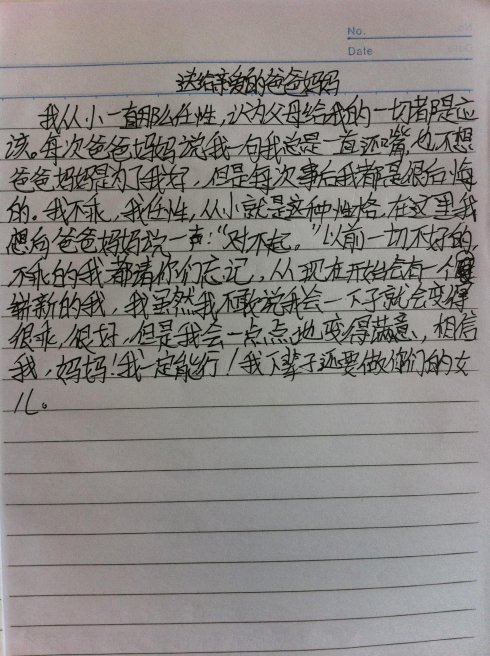 No.
Date
送给亲爱的爸爸妈妈
我从小一直那么任性,认为父母给我的一切都是应
该。每次爸爸妈妈说我一句我总是一直还嘴也不想
爸爸妈妈是为了我好,但是每次事后我都是很后悔
的。我不乖,我任性,从小就是这种性格。在这里我
想向爸爸妈妈说一声:“对不起。”以前一切不好的,
不乖的我都请你们忘记,从现在开始会有一个
崭新的我,我虽然我不敢说我会一下子就会变得
很乖,很好,但是我会一点点地变得满意,相信
我,妈妈!我一定能行!我下辈子还要做你们的女
儿。